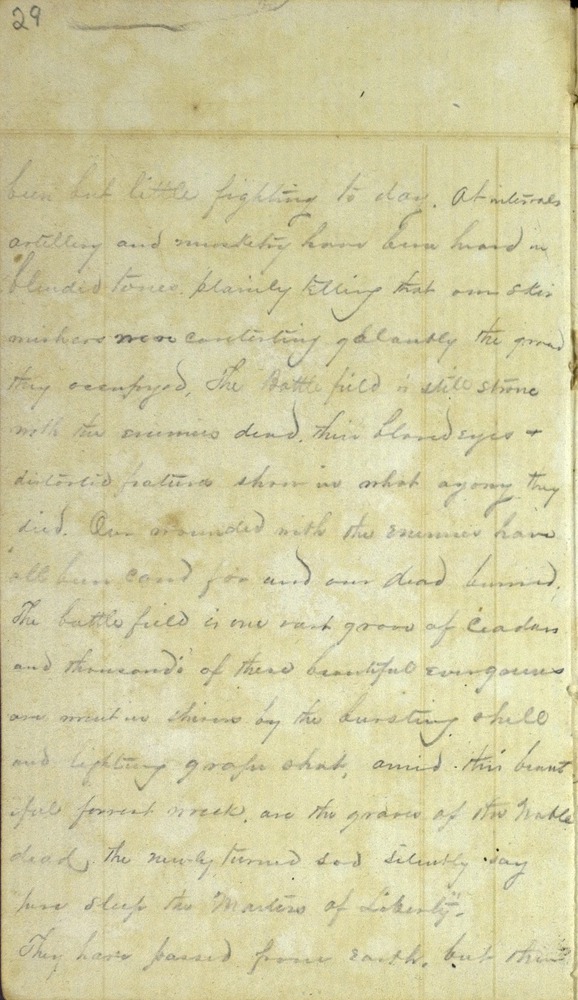 29
been but little fighting to day. At intervals
artillery and musketry have been heard in
blended tones plainly telling that our skir
mishers were contesting galantly the ground
they occupyed. The Battle field is still strone
with the enemies dead. their eyes &
distorted features show in what agony they
died. Our wounded with the enemies have
all been card for and our dead burried.
The battle field is one vast grove of Ceadars
and thousands of these beautiful evergreens
are in shivers by the bursting shell
and lightning grape shot, amid this beaut
iful forrest wreck, are the graves of the Noble
dead, the newly turned sod silently say
here sleep the Marters of Liberty.
They have passed from earth, but their